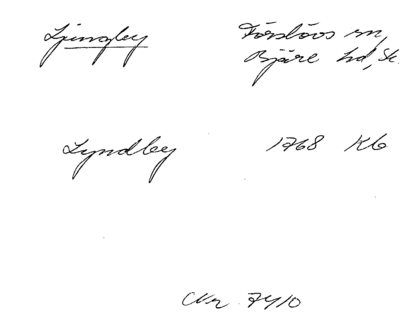 Ljungby Förslövs sn,
Bjäre hd, Sk.
Lyndbey 1768 Kb
Nr 7410